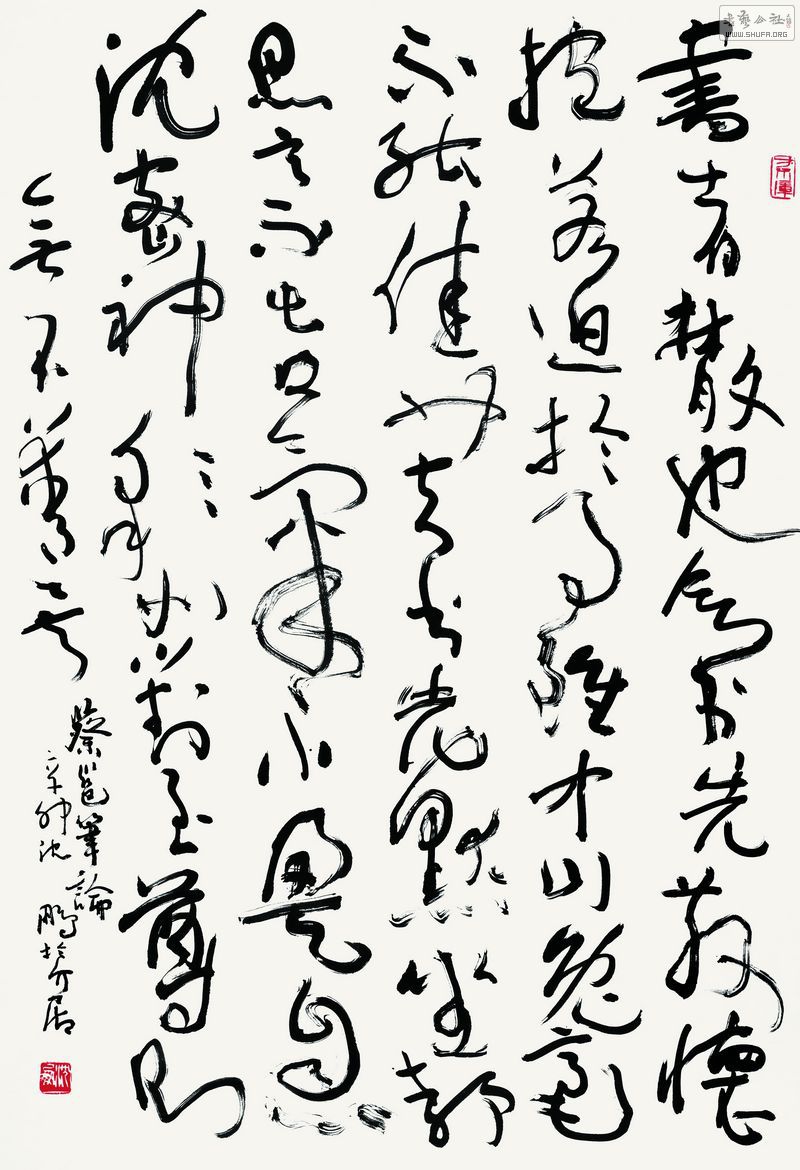 書者散也欲書先散懷
抱若迫於事雖中山兔毫
不能佳也夫書先默坐靜
思言不出口氣不盈息
沈密神彩如對至尊則
無不善矣
蔡邕筆論
辛卯沈鵬於介居
書藝公社
WWW.SHUFA.ORG